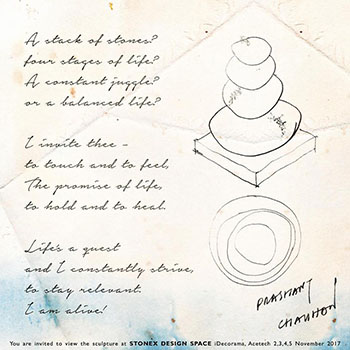 A stack of stones?
four stages of life?
A constant juggle?
or a balanced life?
I invite thee -
to touch and to feel,
The promise of life,
to hold and to heal.
Life's a quest
and I constantly strive,
to stay relevant.
I am alive!
PRASHANT
CHAUHAN
You are invited to view the sculpture at STONEX DESIGN SPACE iDecorama, Acetech 2,3,4,5 November 2017